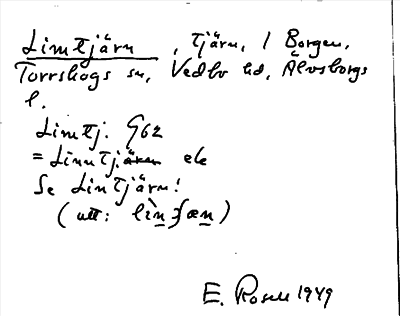 Limtjärn, tjärn, i Borgen,
Torrskogs sn, Vedbo hd, Älvsborgs
l.
Limtj. G62
= Linntjärn
Se Lintjärn!
(utt:
E. Rosell 1949